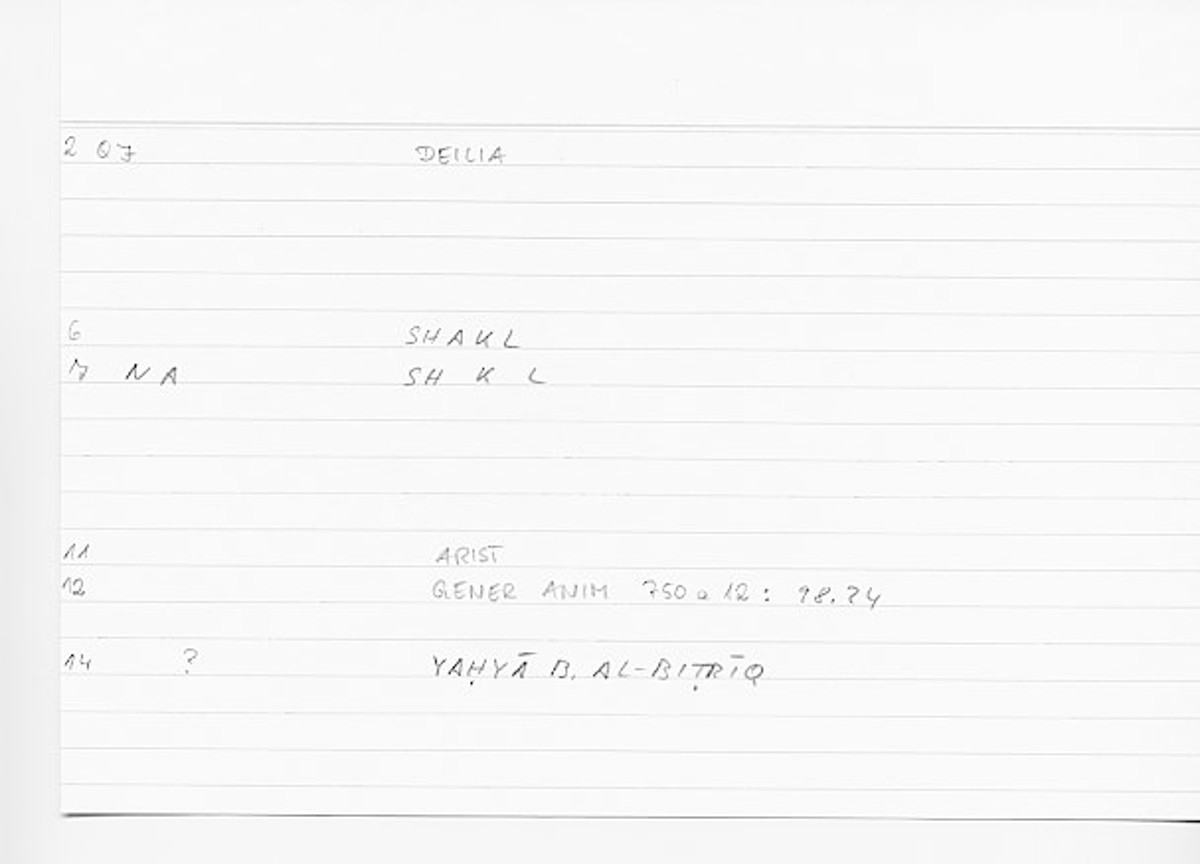 2 QJ DEILIA
6 SHAKL
7 NA SH K L
11 ARIST
12 GENER ANIM 750 a 12 : 98.24
14 ? YAḤYĀ B. AL-BIṬRĪQ